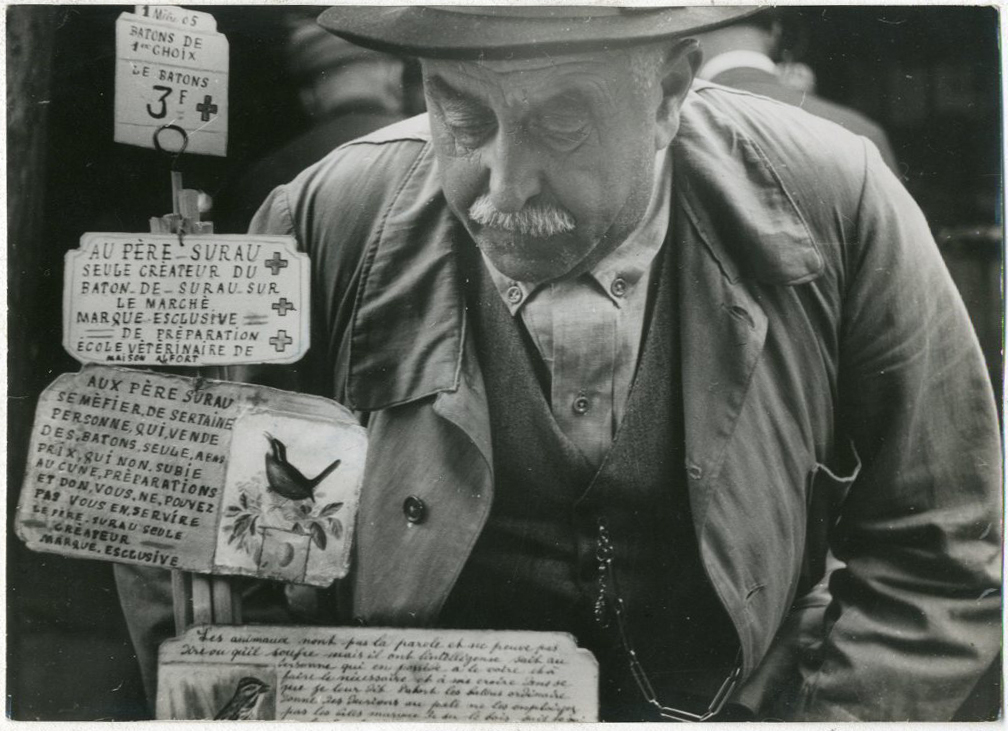 1 Mètre 05
BATONS DE
1er CHOIX
LE BATONS
3 F
AU PÈRE-SURAU
SEULE CRÉATEUR DU
BATON-DE-SURAU SUR
LE MARCHÈ
MARQUE EXCLUSIVE
DE PRÉPARATION
ÉCOLE VÉTÈRINAIRE DE
MAISON ALFORT
AUX PÈRE SURAU
SE MÈFIER, DE SERTAINE
PERSONNE, QUI, VENDE
DES, BATONS, SEULE, ABAS
PRIX, QUI NON, SUBIE
AUCUNE, PRÈPARATIONS
ET DON, VOUS, NE, POUVEZ
PAS VOUS EN, SERVIRE
LE PÈRE-SURAU SEULE
CRÉATEUR
MARQUE, ESCLUSIVE
Les animaux nont pas la parole et ne peuve pas
dire ou qu'il soufre mais il ont lintelligense sait au
personne qui en possive a le votre et à
faire le nécessaire et à sas croire dans se
que je leur dit
les batons ordinaire
ne les employez
pas les